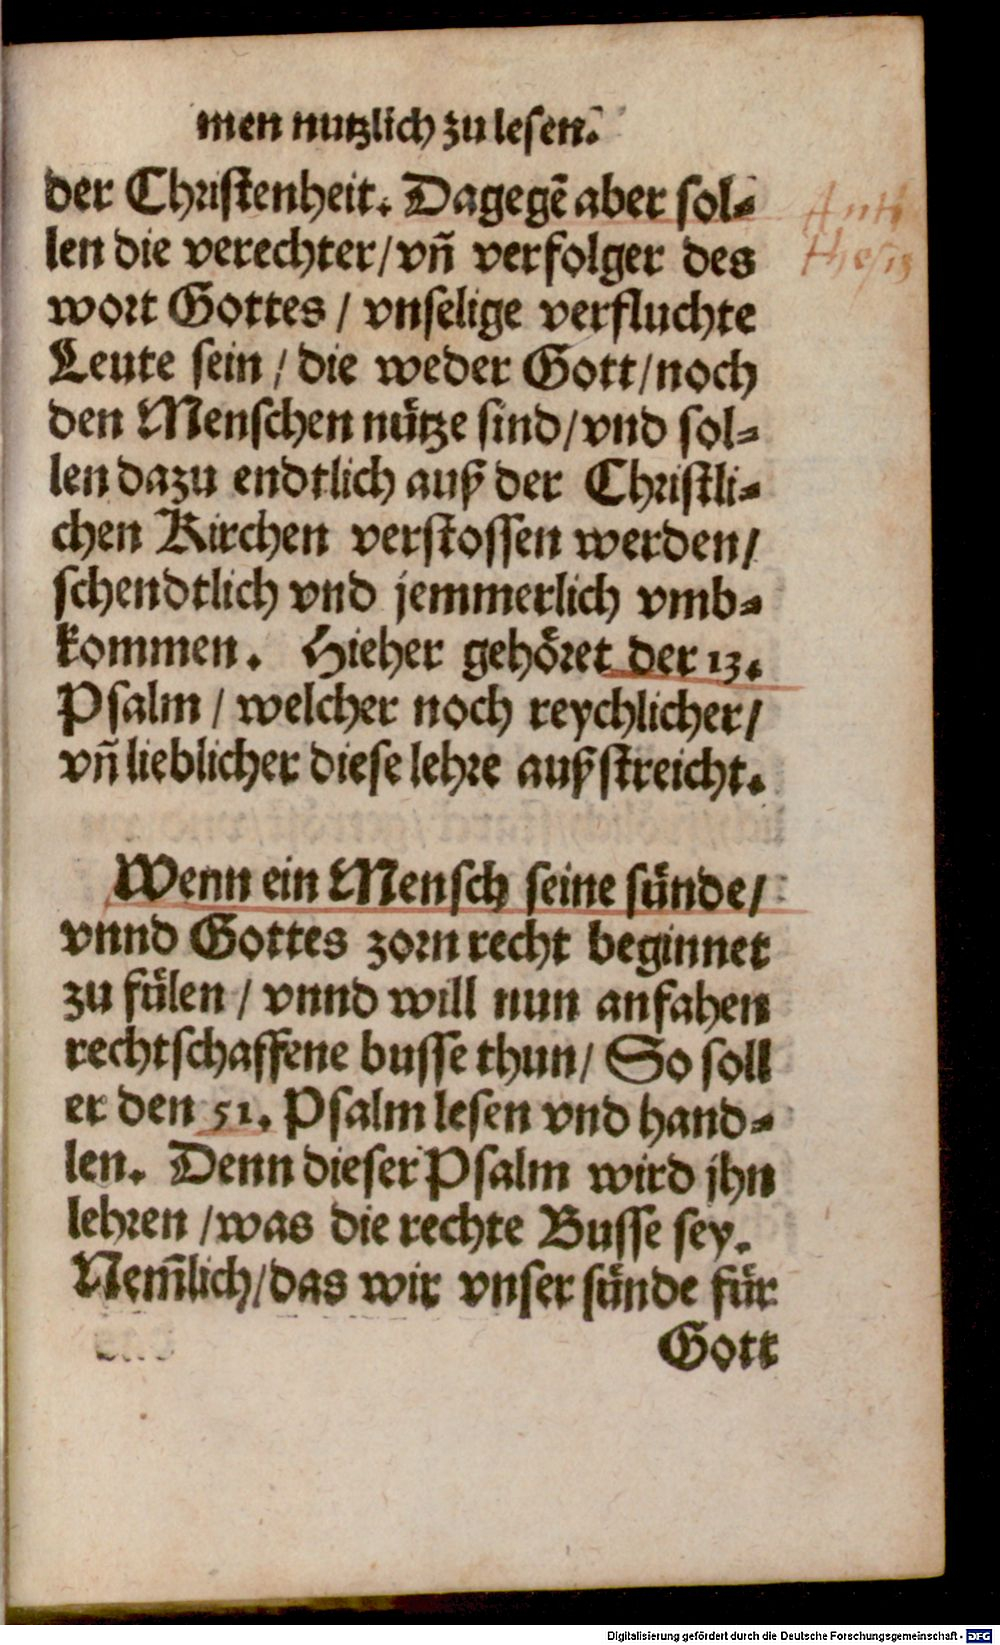 men nutzlich zu lesen.
der Christenheit. Dagegē aber sol⸗
len die verechter/ vñ verfolger des
wort Gottes / vnselige verfluchte
Leute sein / die weder Gott/ noch
den Menschen nütze sind/ vnd sol⸗
len dazu endtlich auß der Christli⸗
chen Kirchen verstossen werden/
schendtlich vnd jemmerlich vmb⸗
kommen. Hieher gehöret der 13.
Psalm / welcher noch reychlicher/
vñ lieblicher diese lehre außstreicht.
Wenn ein Mensch seine sünde/
vnnd Gottes zorn recht beginnet
zu fülen / vnnd will nun anfahen
rechtschaffene busse thun/ So soll
er den 51. Psalm lesen vnd hand⸗
len. Denn dieser Psalm wird jhn
lehren / was die rechte Busse sey.
Nem̄lich/ das wir vnser sünde für
Gott
Anti
thesis
Digitalisierung gefördert durch die Deutsche Forschungsgemeinschaft - DFG